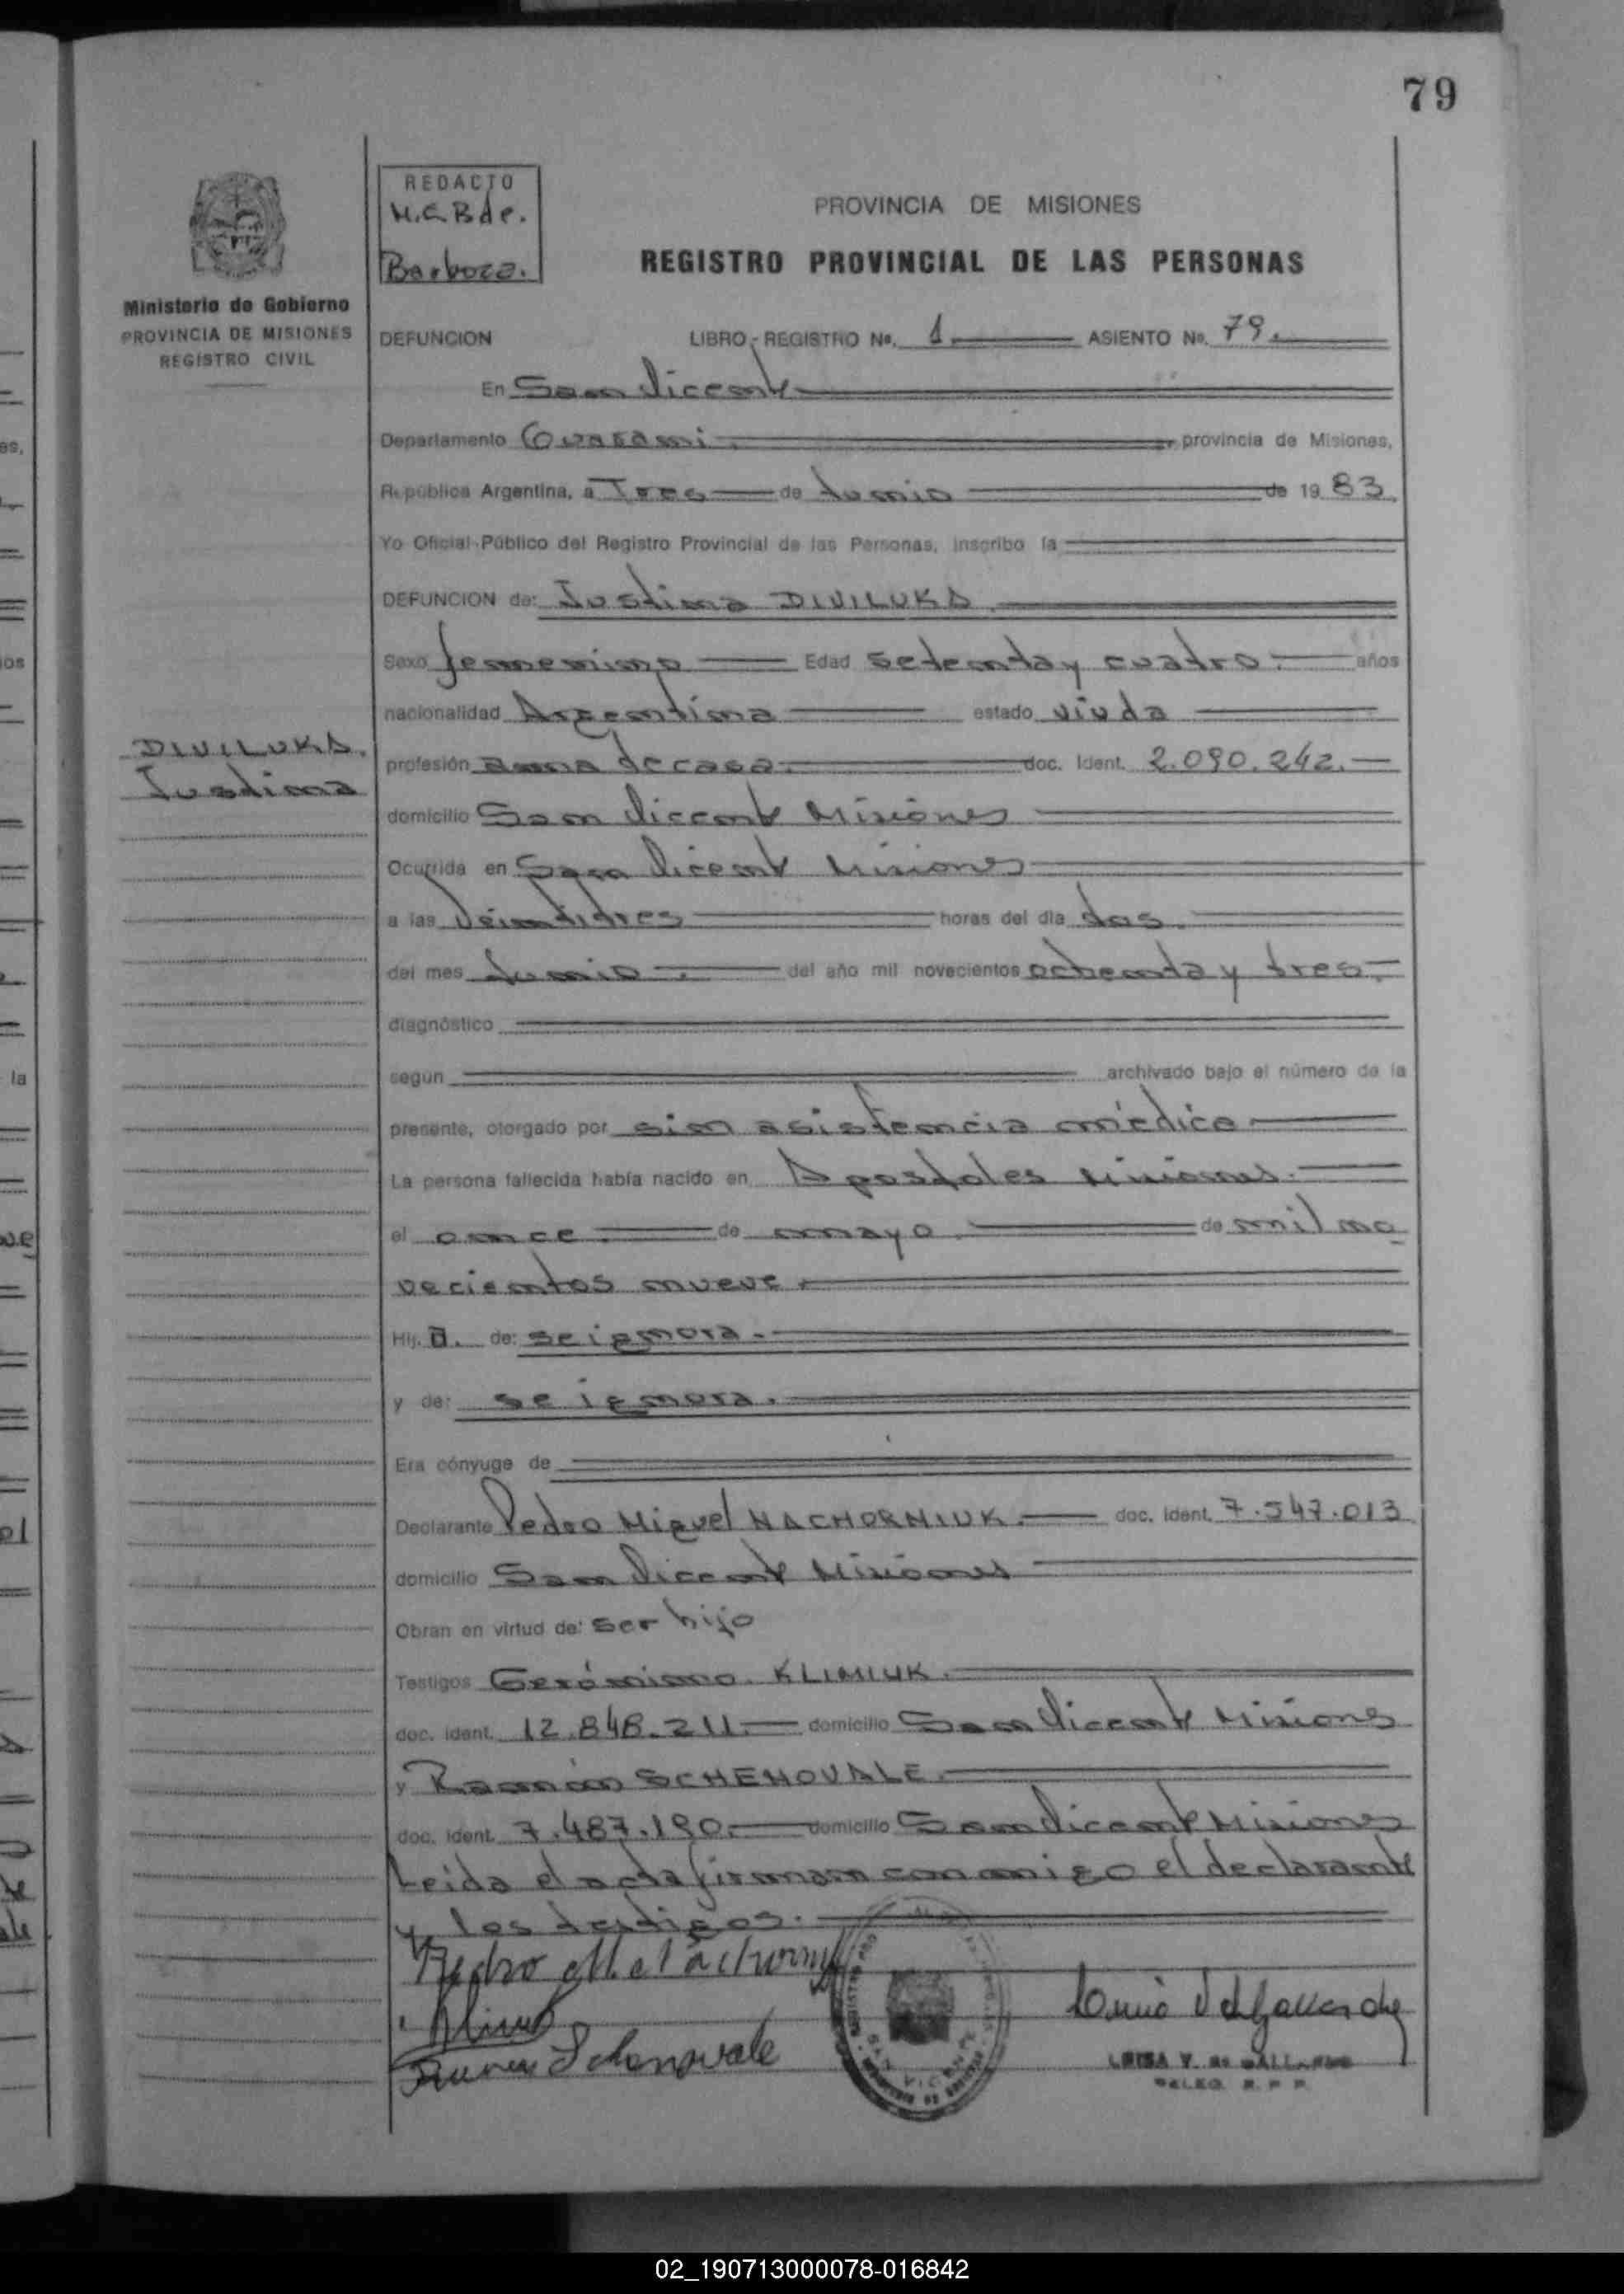 79
REDACTO
M.C.B de.
Barboza.
PROVINCIA DE MISIONES
REGISTRO PROVINCIAL DE LAS PERSONAS
Ministerio de Gobierno
PROVINCIA DE MISIONES
REGISTRO CIVIL
DEFUNCION LIBRO - REGISTRO No. 1. ASIENTO No. 79.
En San Vicente
Departamento Guaraní. provincia de Misiones,
República Argentina, a Tres de Junio de 1983.
Yo Oficial Público del Registro Provincial de las Personas, inscribo la
DEFUNCION de: Justina DIVILUKA.
Sexo femenino Edad setenta y cuatro. años
nacionalidad Argentina estado viuda
DIVILUKA.
Justina
profesión ama de casa. doc. Ident. 2.090.242.
domicilio San Vicente Misiones
Ocurrida en San Vicente Misiones
a las Veintitres horas del día dos.
del mes Junio. del año mil novecientos ochenta y tres.
diagnóstico
según archivado bajo el número de la
presente, otorgado por sin asistencia médica
La persona fallecida había nacido en Apostoles Misiones.
el once. de mayo. de mil no
vecientos nueve.
Hij a. de: se ignora.
y de: se ignora.
Era cónyuge de
Declarante Pedro Miguel NACHORNIUK. doc. ident. 7.547.013
domicilio San Vicente Misiones
Obran en virtud de: ser hijo
Testigos Gerónimo. KLIMIUK.
doc. ident. 12.848.211. domicilio San Vicente Misiones
y Ramón SCHENOVALE.
doc. ident. 7.487.190. domicilio San Vicente Misiones
Leida el acta firman conmigo el declarante
y los testigos.
Pedro
Schenovale
LUISA V. DE GALLARDO
DELEG. R. P. P.
02_190713000078-016842